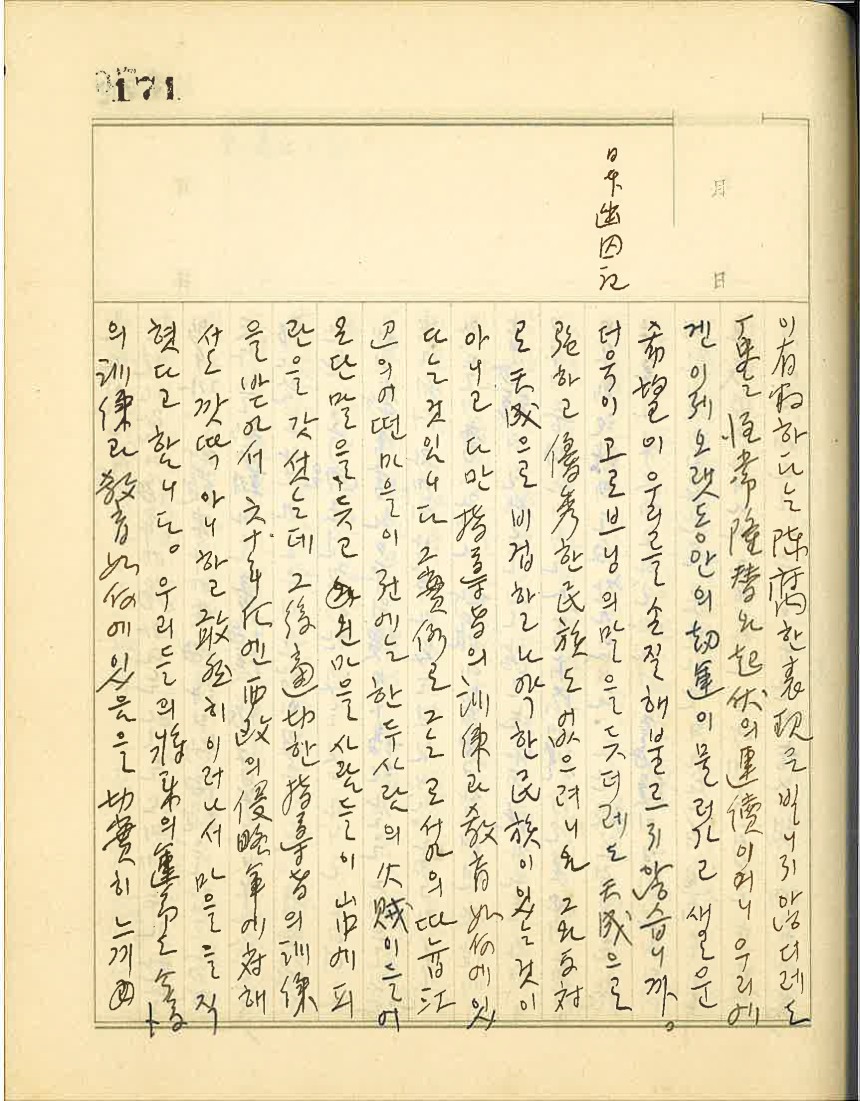 171
月
日
早出囚記
이 有하다는 陳腐한 表現을 빌니지 않더레도
運는 恒常 隆替와 起伏의 連續이려니 우리에
겐 이제 오랫동안의 劫運이 물러가고 새로운
希望이 우리를 손질해 불르지 않습니까。
더욱이 고로브닝의 말을 듯더레도 天成으로
强하고 優秀한 民族도 없으려니와 그와 反対
로 天成으로 비겁하고 나약한 民族이 있는 것이
아니고 다만 指導者의 訓練과 敎育 如何에 있
다는 것입니다 그 實例로 그는 로서아의 따늅江
의 어떤 마을이 전에는 한두사람의 火賊이 들어
온단 말을 듯고 왼마을 사람들이 山中에 피
란을 갓섯는데 그後 適切한 指導者의 訓練
을 받아서 六十年代엔 西歐의 侵略軍에 対해
서도 깟딱 아니하고 敢然히 이러나서 마을을 직
혓다고 합니다。우리들의 將来의 運命도
의 訓練과 敎育 如何에 있음을 切實히 느끼